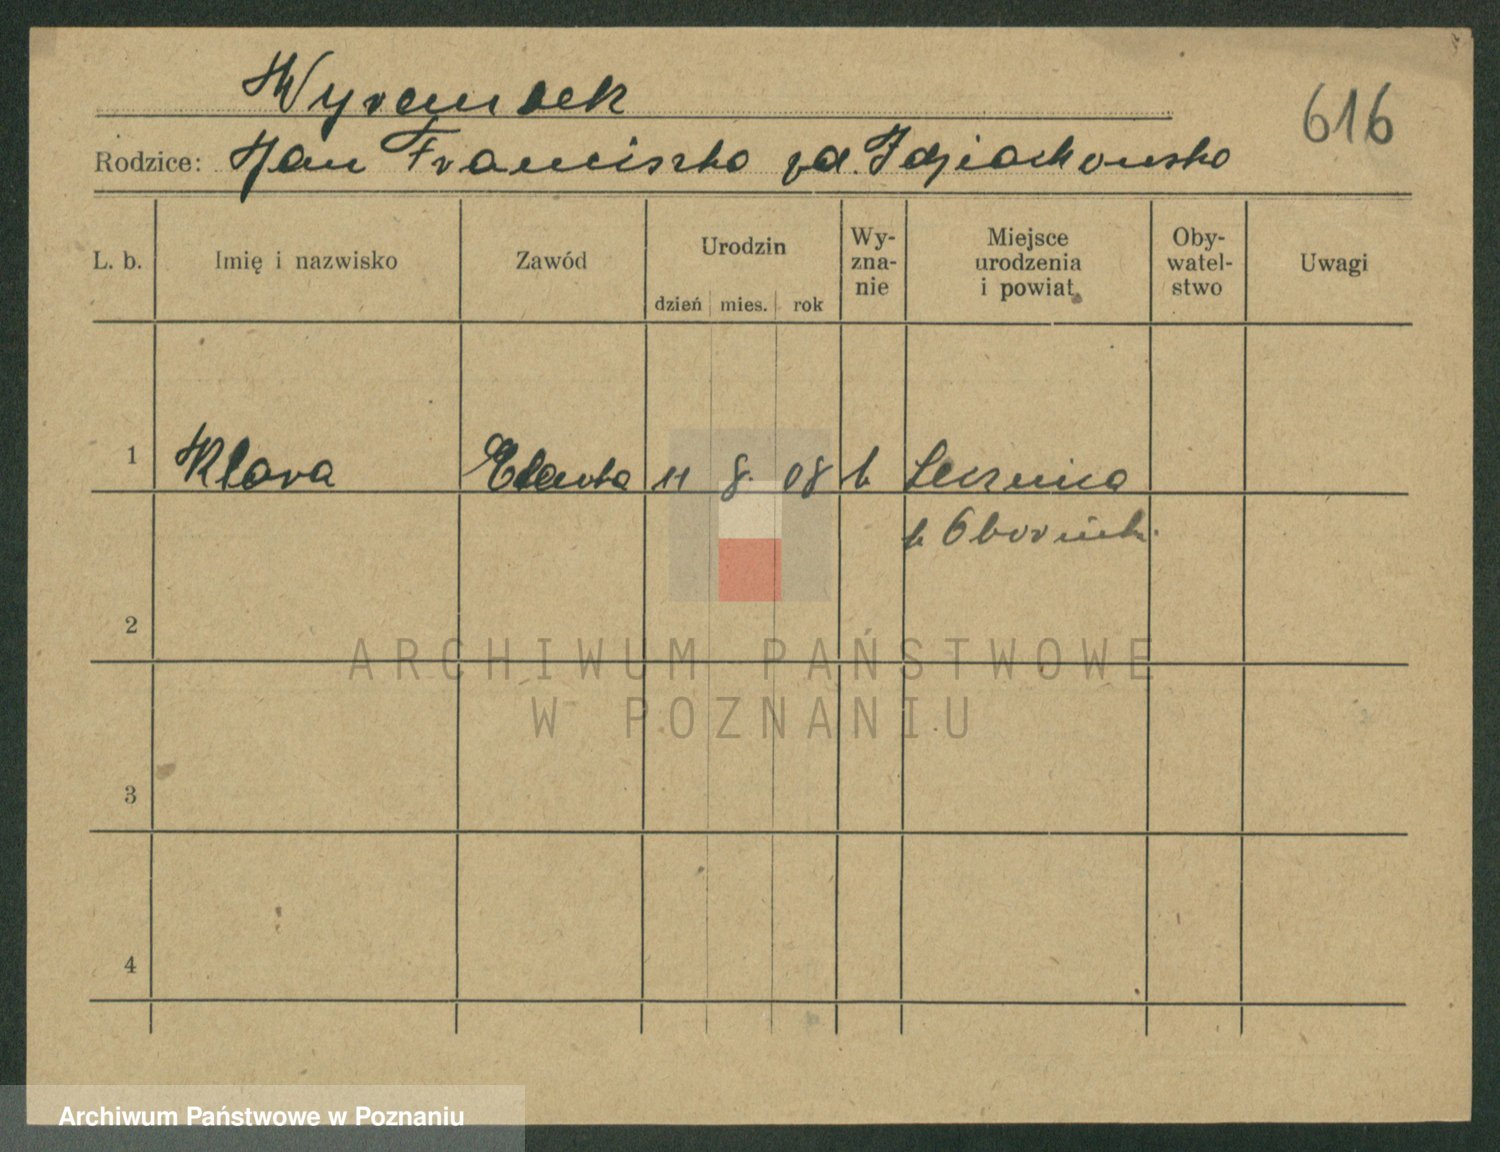 Wyrembek
616
Rodzice: Jan Franciszka zd. Idziakowska
L. b.
Imię i nazwisko
Zawód
Urodzin
dzień mies. rok
Wy-
zna-
nie
Miejsce
urodzenia
i powiat
Oby-
watel-
stwo
Uwagi
1 Klara 11 8. 08 k
p. Obornicki.
2
ARCHIWUM PAŃSTWOWE
W POZNANIU
3
4
Archiwum Państwowe w Poznaniu